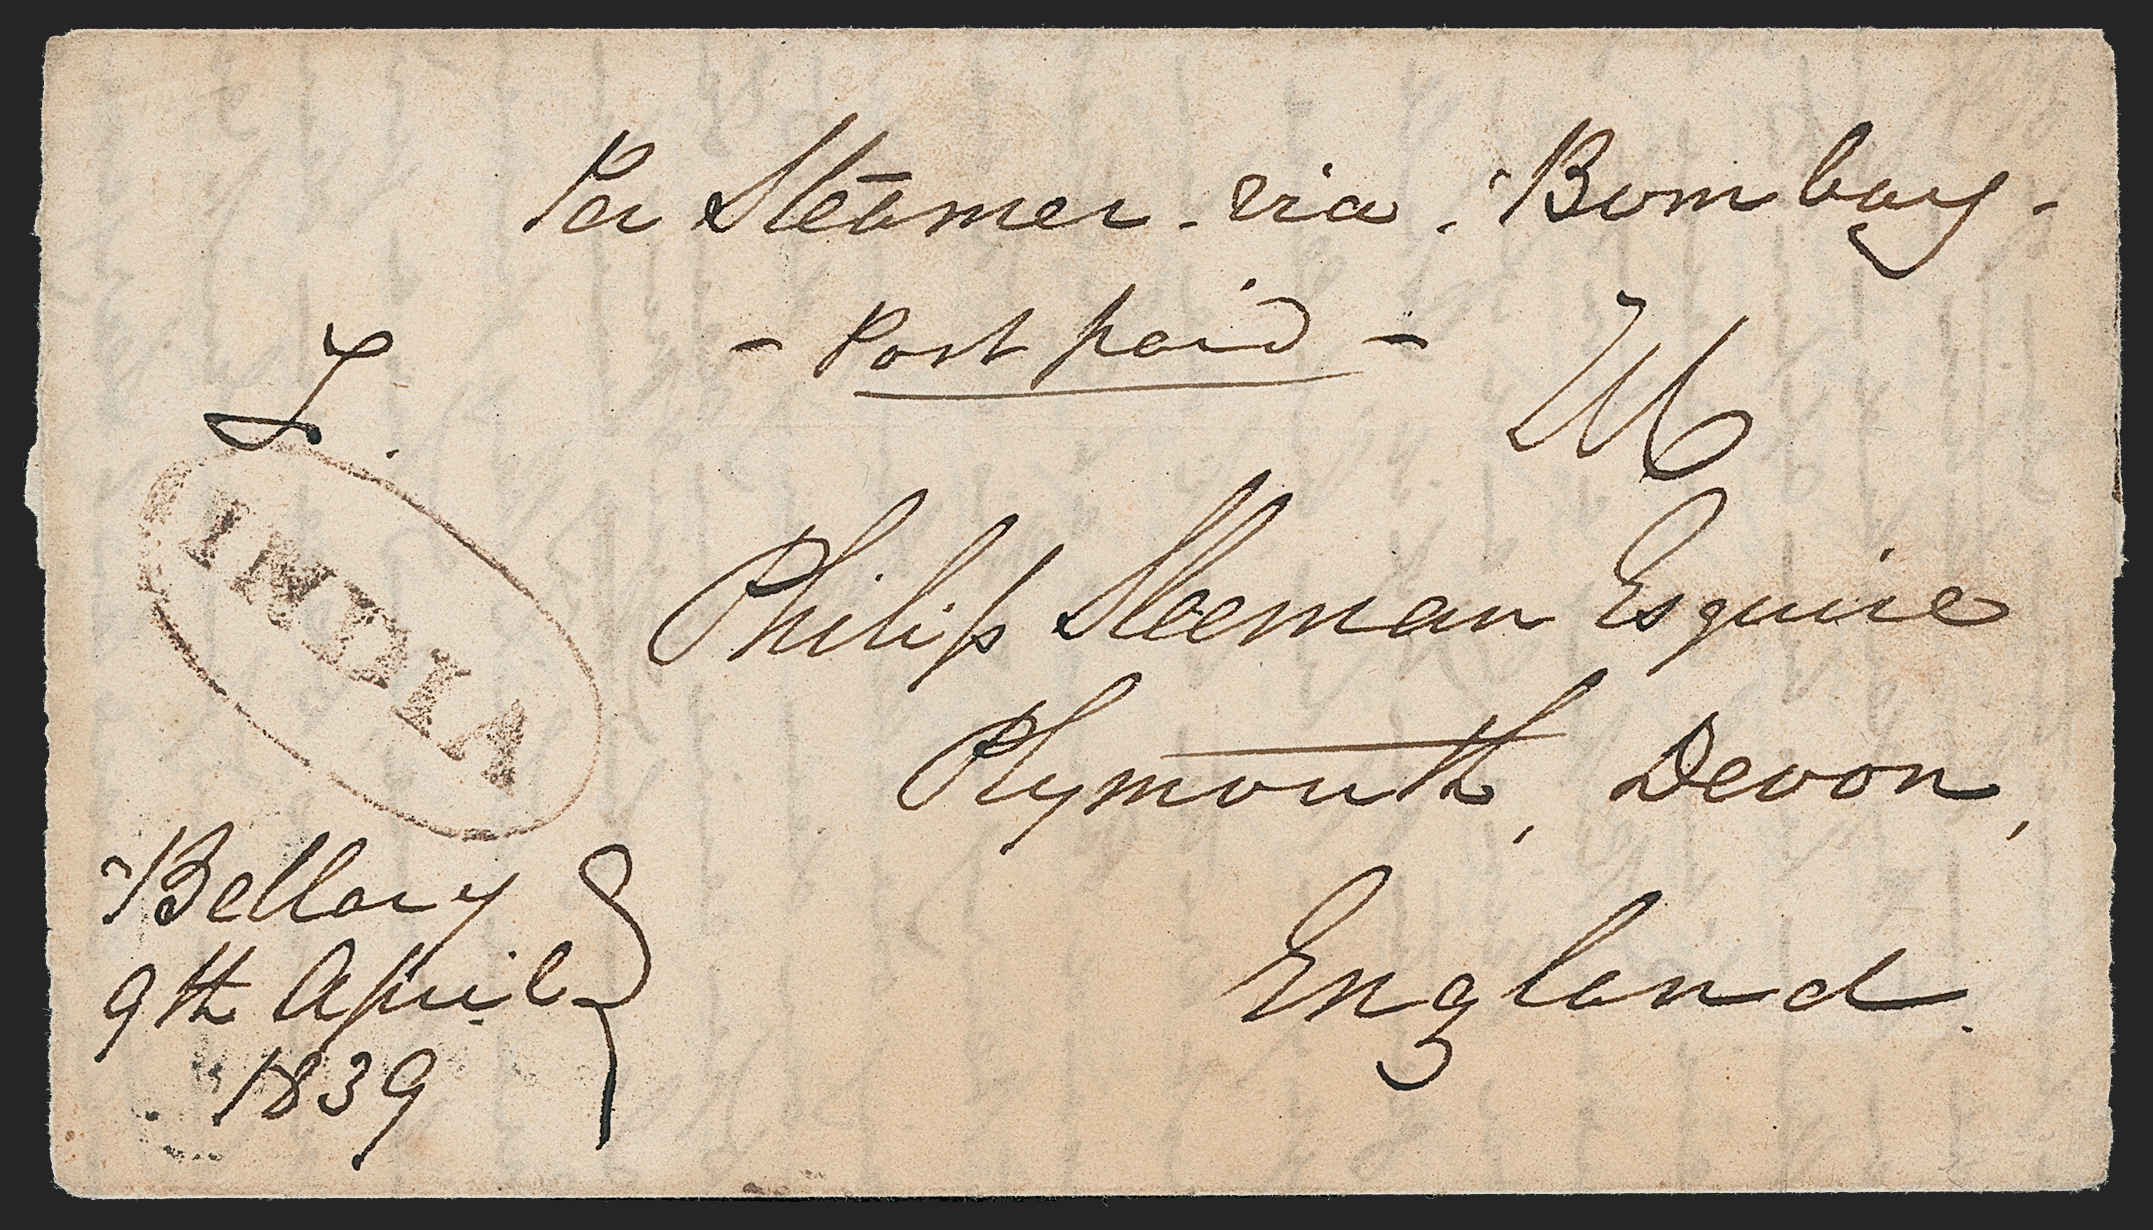 Per Steamer - via - Bombay -
- Post paid -
INDIA
Philip Sleeman Esquire
Plymouth, Devon,
England.
Bellary
9th April
1839